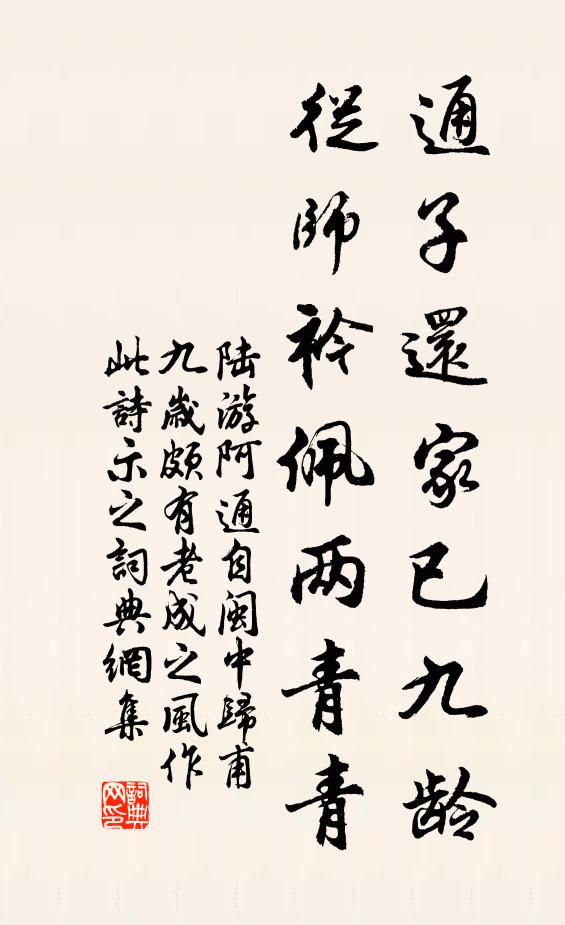 通子還家已九龄
從師衿佩两青青
陆游阿通自闽中歸甫
九歲頗有老成之風作
此詩示之詞典網集
詞典
网印